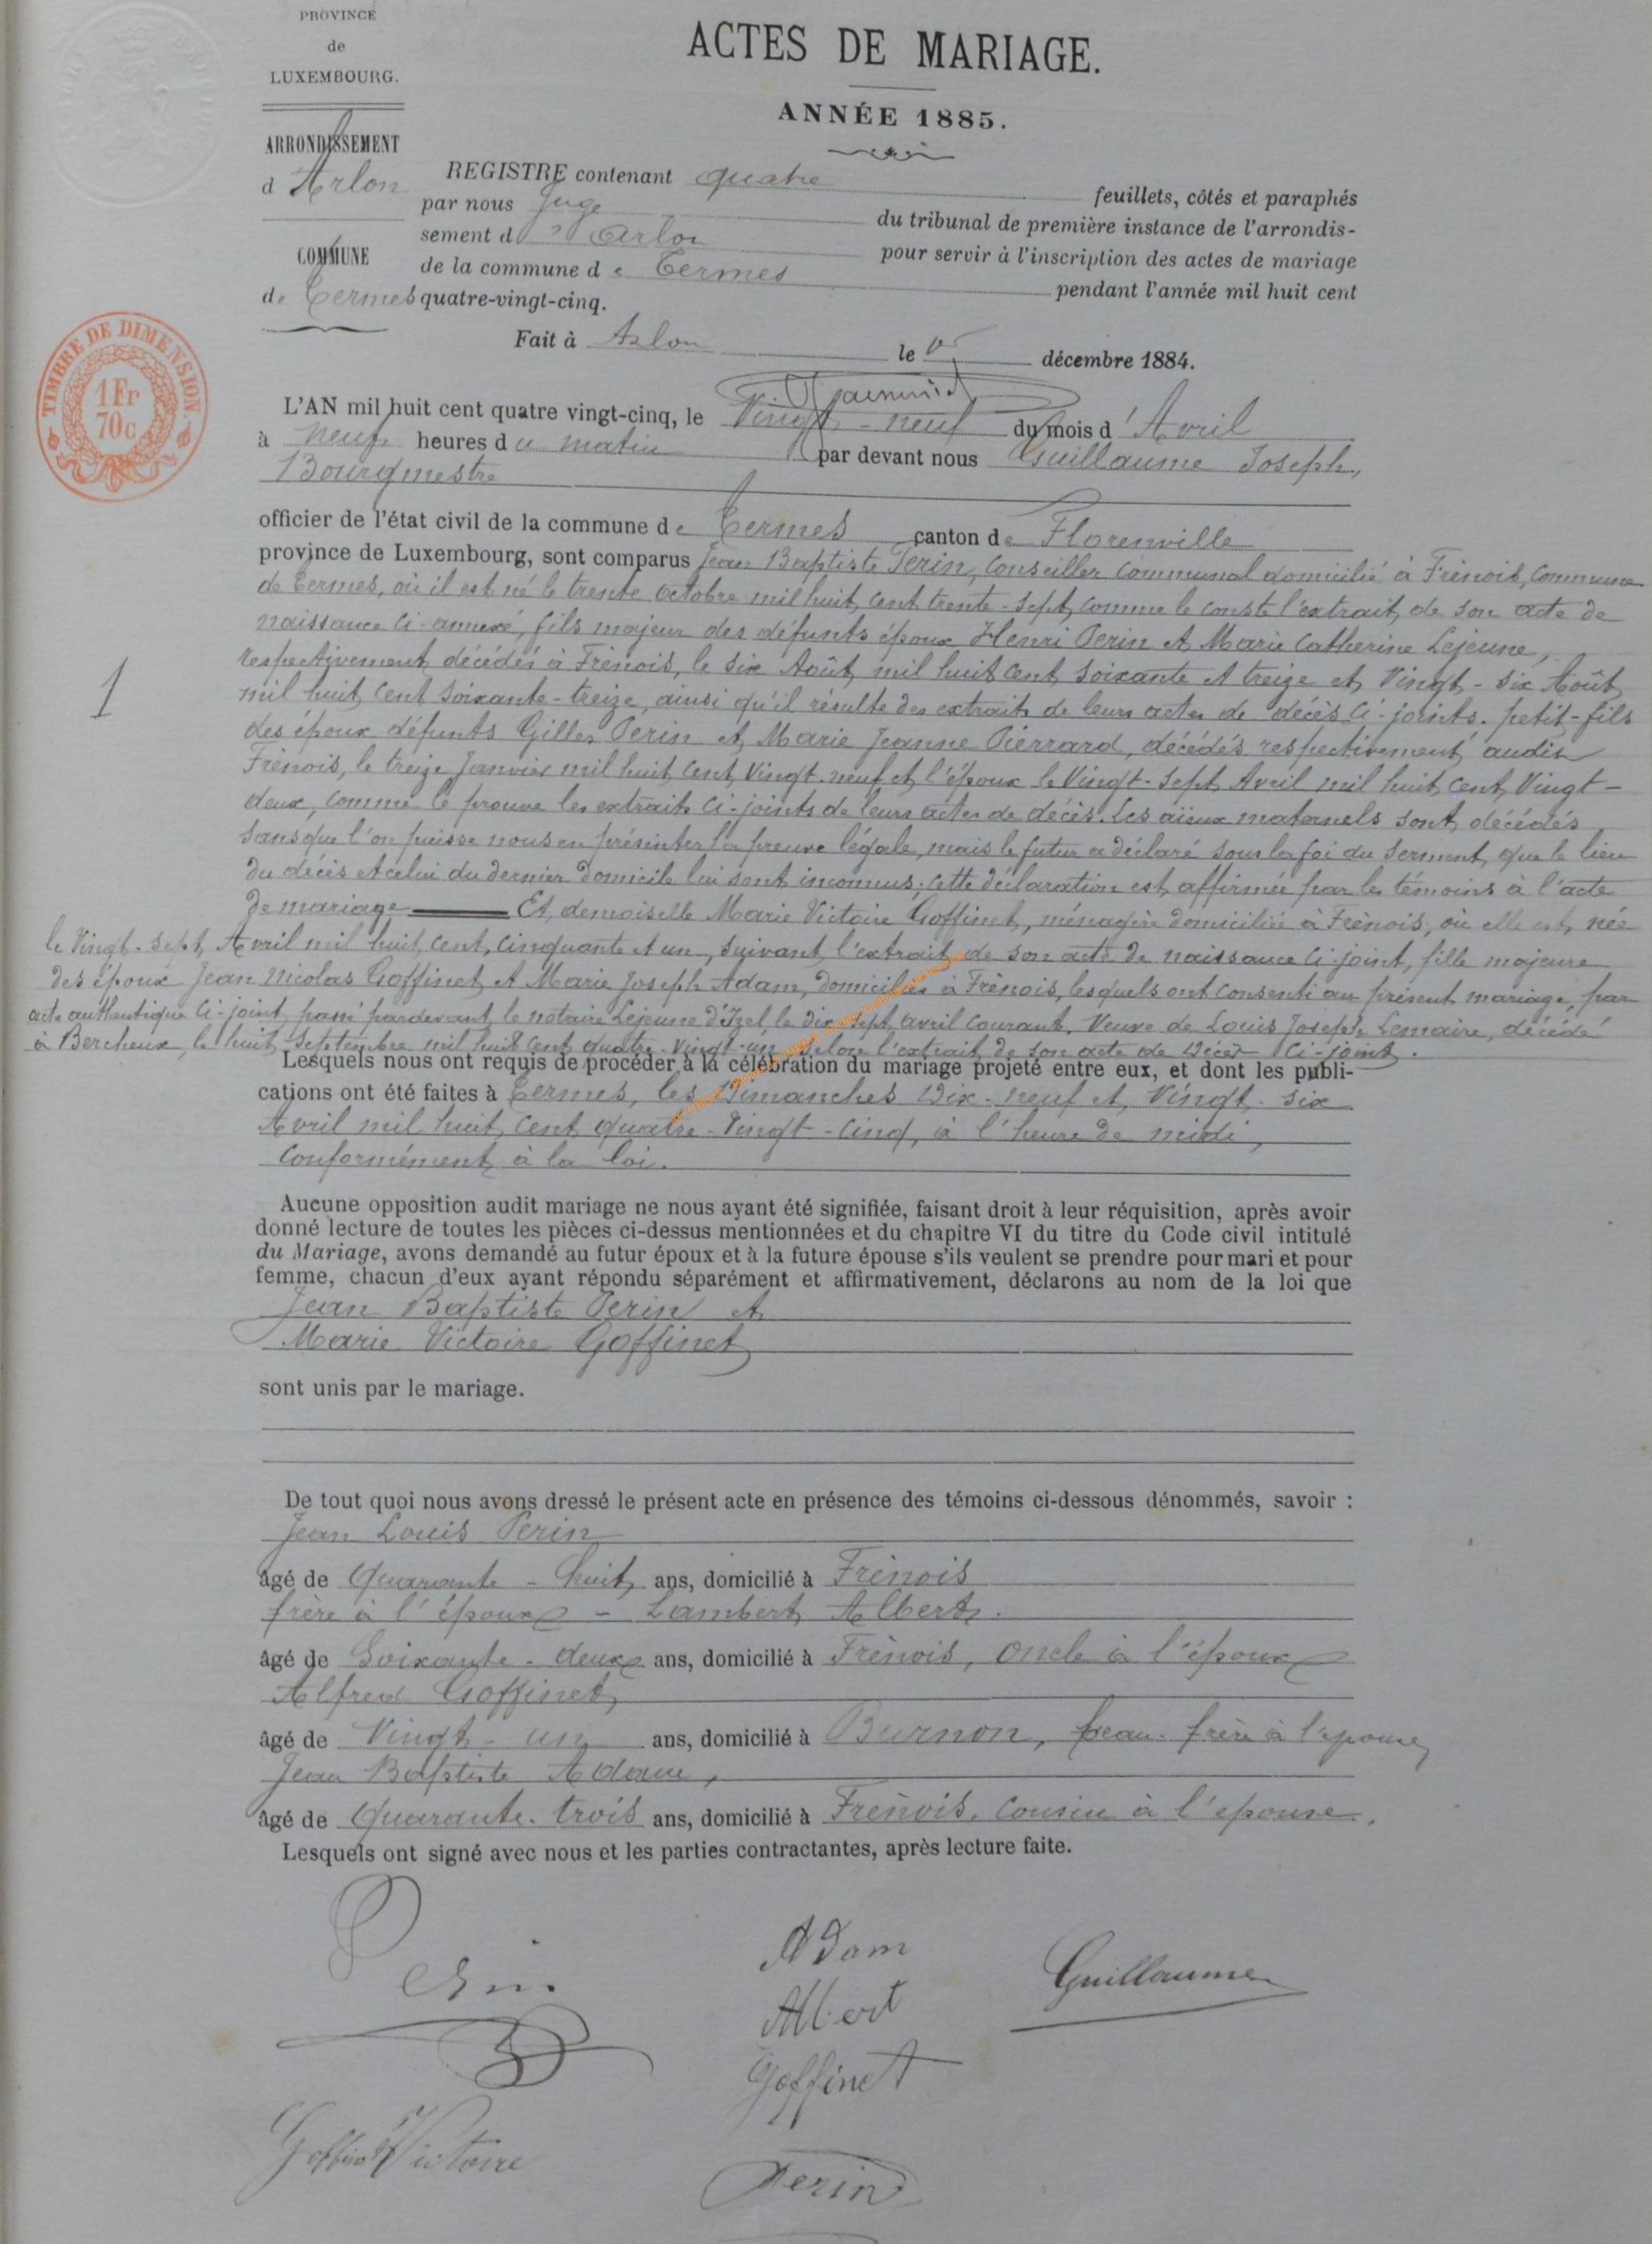 PROVINCE
de
LUXEMBOURG.
ARRONDISSEMENT
d'Arlon
COMMUNE
de Termes
TIMBRE DE DIMENSION.
1 Fr
70c
ACTES DE MARIAGE.
ANNÉE 1885.
REGISTRE contenant quatre feuillets, côtés et paraphés
par nous Juge du tribunal de première instance de l'arrondis-
sement d'Arlon pour servir à l'inscription des actes de mariage
de la commune de Termes pendant l'année mil huit cent
quatre-vingt-cinq.
Fait à Arlon le décembre 1884.
L'AN mil huit cent quatre vingt-cinq, le Vingt-neuf du mois d'Avril
à neuf heures du matin par devant nous Guillaume Joseph,
Bourgmestre
officier de l'état civil de la commune de Termes canton de Florenville
province de Luxembourg, sont comparus Jean Baptiste Perin, Conseiller Communal domicilié à Frénois, Commune
de Termes, où il est né le trente octobre mil huit cent trente-sept, comme le conste l'extrait de son acte de
naissance ci-annexé, fils majeur des défunts époux Henri Perin et Marie Catherine Lejeune,
respectivement décédés à Frénois, le six Août mil huit cent soixante et treize et Vingt-six Août
mil huit cent soixante-treize, ainsi qu'il résulte des extraits de leurs actes de décès ci-joints. petit-fils
des époux défunts Gilles Perin et Marie Jeanne Pierrard, décédés respectivement audit
Frénois, le treize Janvier mil huit cent Vingt-neuf et l'époux le Vingt-sept Avril mil huit cent Vingt-
deux, comme le prouve les extraits ci-joints de leurs actes de décès. Les aïeux maternels sont décédés
sans que l'on puisse nous en présenter la preuve légale, mais le futur a déclaré sous la foi du serment, que le lieu
du décès et celui du dernier domicile lui sont inconnus; cette déclaration est affirmée par les témoins à l'acte
de mariage Et, demoiselle Marie Victoire Goffinet, ménagère domiciliée à Frénois, où elle est née
le Vingt-sept Avril mil huit cent cinquante et un, suivant l'extrait de son acte de naissance ci-joint, fille majeure
des époux Jean Nicolas Goffinet et Marie Joseph Adam, domiciliés à Frénois, lesquels ont consenti au présent mariage, par
acte authentique ci-joint passé pardevant le notaire Lejeune d'Izel, le dix-sept avril courant. Veuve de Louis Joseph Lemaire, décédé
à Bercheux, le huit Septembre mil huit cent quatre-vingt-un selon l'extrait de son acte de décès ci-joint.
1
Lesquels nous ont requis de procéder à la célébration du mariage projeté entre eux, et dont les publi-
cations ont été faites à Termes, les Dimanches Dix-neuf et Vingt-six
Avril mil huit cent quatre-Vingt-cinq, à l'heure de midi,
conformément à la loi.
Aucune opposition audit mariage ne nous ayant été signifiée, faisant droit à leur réquisition, après avoir
donné lecture de toutes les pièces ci-dessus mentionnées et du chapitre VI du titre du Code civil intitulé
du Mariage, avons demandé au futur époux et à la future épouse s'ils veulent se prendre pour mari et pour
femme, chacun d'eux ayant répondu séparément et affirmativement, déclarons au nom de la loi que
Jean Baptiste Perin et
Marie Victoire Goffinet
sont unis par le mariage.
De tout quoi nous avons dressé le présent acte en présence des témoins ci-dessous dénommés, savoir :
Jean Louis Perin
âgé de Quarante-huit ans, domicilié à Frénois
frère à l'époux - Lambert Albert.
âgé de Soixante-deux ans, domicilié à Frénois, oncle à l'époux
Alfred Goffinet,
âgé de Vingt-un ans, domicilié à Burnon, beau-frère à l'épouse,
Jean Baptiste Adam,
âgé de Quarante-trois ans, domicilié à Frénois, cousin à l'épouse.
Lesquels ont signé avec nous et les parties contractantes, après lecture faite.
Perin
Adam
Guillaume
Albert
Goffinet
Goffinet Victoire
Perin